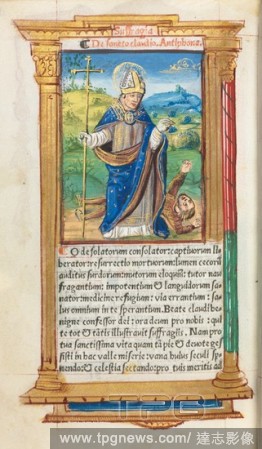 Suffragia
De sancto claudio. Antiphona.
O desolatorum consolator: captiuorum li
berator: resurrectio mortuorum: lumen cecorũ
auditus surdorum: mutorum eloquiũ: tutor nau
fragantium: impotentium & languidorum sa-
nator: medicine refugium: via errantium: sa-
lus omnium in te sperantium. Beate claudi be
nigne confessor dei: ora deum pro nobis: qui
te tot & tãtis illustrauit suffragiis. Nam pro
tua sanctissima vita quam tã pie & deuote ges
sisti in hac valle miserie: vana huius seculi sp
nendo: & celestia sectando: pro tuis meritis ad
TPG
www.tpgnews.com / 達志影像